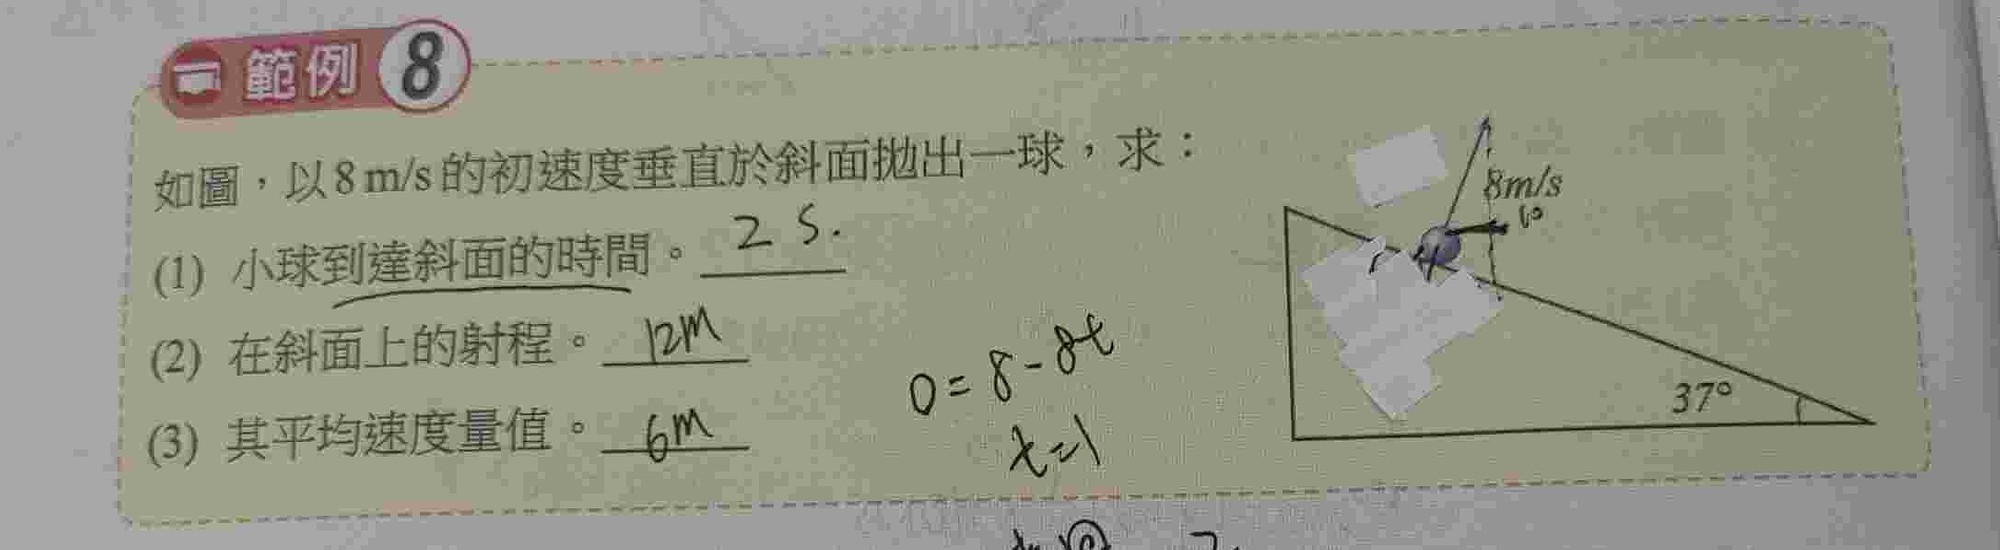 範例 8
如圖，以8 m/s的初速度垂直於斜面拋出一球，求：
(1) 小球到達斜面的時間。 2 s.
(2) 在斜面上的射程。 12m
(3) 其平均速度量值。 6m
0 = 8 - 8t
t=1
8m/s
37°